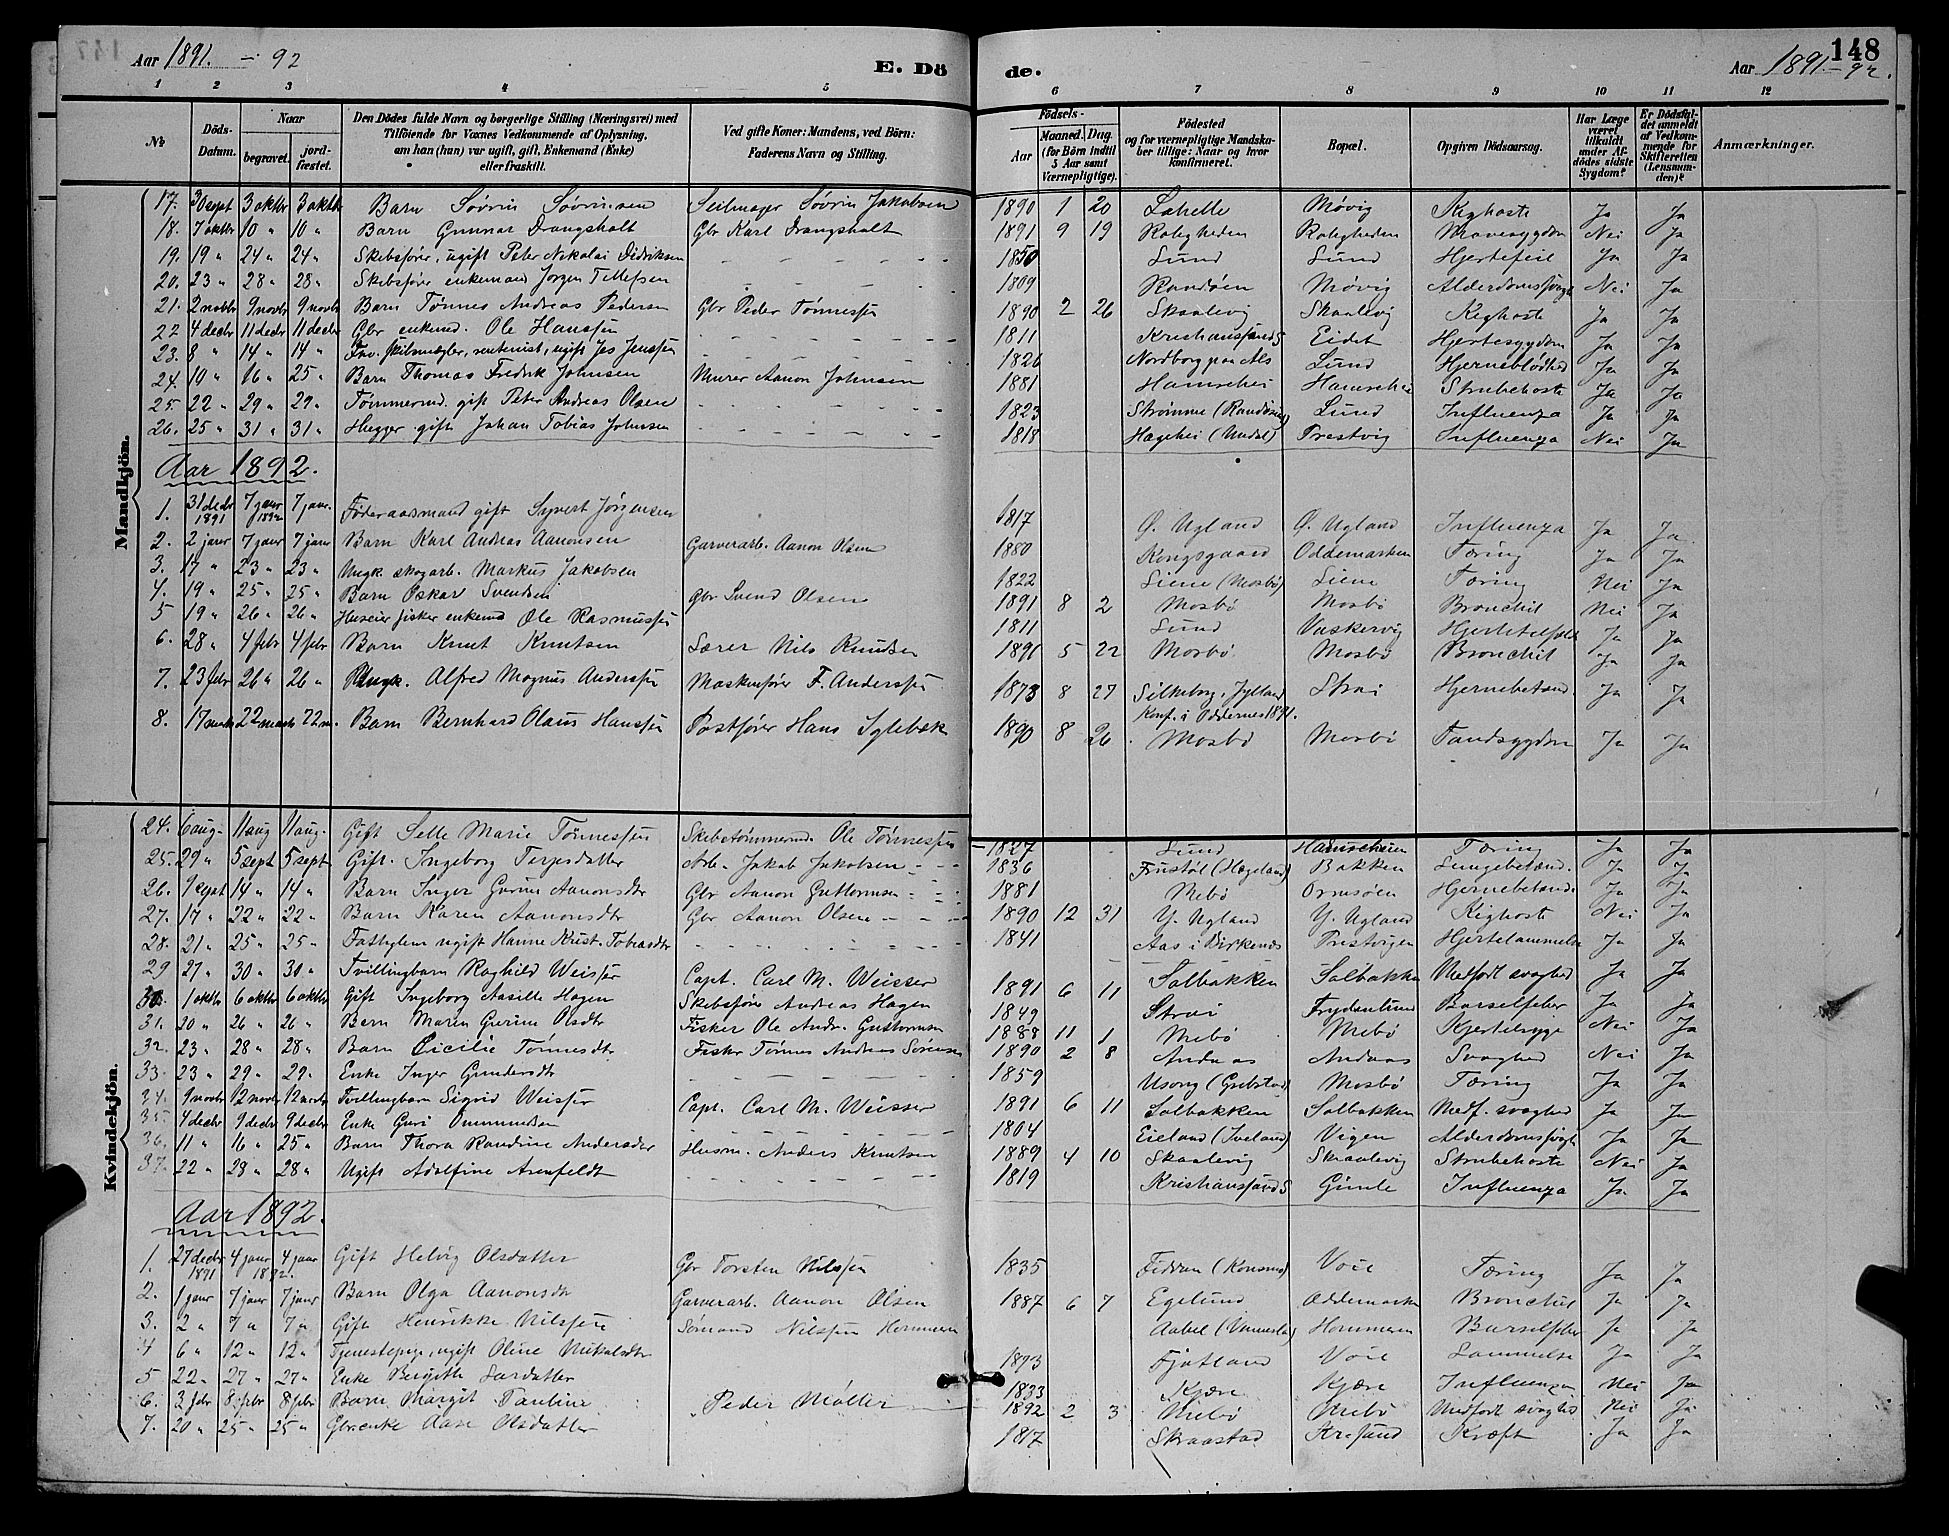 Aar 1891. – 92 E. Dö de. Aar 1891.–92. 148
1 2 3 4 5 6 7 8 9 10 11 12
No. Döds-Datum. Naar begravet. jordfæstet. Den Dödes fulde Navn og borgerlige Stilling (Næringsvei) med Tilföiende for Voxnes Vedkommende af Oplysning, om han (hun) var ugift, gift, Enkemand (Enke) eller fraskilt. Ved gifte Koner: Mandens, ved Börn: Faderens Navn og Stilling. Födsels- Aar Maaned. Dag. (for Börn indtil 5 Aar samt Værnepligtige). Födested og for værnepligtige Mandskaber tillige: Naar og hvor konfirmeret. Bopæl. Opgiven Dödsaarsag. Har Læge været tilkaldt under Afdödes sidste Sygdom? Er Dödsfaldet anmeldt af Vedkommende for Skifteretten (Lensmanden)? Anmærkninger.
Mandkjön.
17. 30 sept 3 oktbr 3 oktbr Barn Sövrin Sövrinsen Seilmager Sövrin Jakobsen 1890 1 20 Lahelle Movig Kighoste Ja Ja
18. 7 oktbr 10 " 10 " Barn Gunnar Drangsholt Gbr Karl Drangsholt 1891 9 19 Roligheden Roligheden Mavesygdom Nei Ja
19. 19 " 24 " 24 " Skibsfører, ugift Peter Nikolai Didriksen 1850 Lund Lund Hjertefeil Ja Ja
20. 23 " 28 " 28 " Skibsfører enkemand Jørgen Tellefsen 1809 Randøen Møvig Alderdomssvagh Nei Ja
21. 2 novbr 9 novbr 9 novbr Barn Tønnes Andreas Pedersen Gbr Peder Tønnessen 1890 2 26 Skaalevig Skaalevig Kighoste Ja Ja
22 4 decbr 11 decbr 11 decbr Gbr enkemd. Ole Hanssen 1811 Kristianssand S Eidet Hjertesygdom Ja Ja
23. 8 " 14 " 14 " Fhv. Skibsmægler, rentenist, ugift Jes Jenssen 1826 Nordborg paa Als Lund Hjerneblödhed Ja Ja
24. 10 " 16 " 25 " Barn Thomas Fredrik Johnsen Murer Aanon Johnsen 1881 Hamrehei Hamrehei Strubehoste Ja Ja
25. 22 " 29 " 29 " Tømmermd. gift Peter Andreas Olsen 1823 Strömme (Randøsund) Lund Influenza Ja Ja
26. 25 " 31 " 31 " Hugger gift Johan Tobias Johnsen 1818 Hagehei (Undal) Prestvig Influenza Nei Ja
Aar 1892.
1. 31 decbr 1891 7 janr 1892 7 janr. Föderaadsmand gift Syvert Jørgensen 1817 Ø. Ugland Ø. Ugland Influenza Ja Ja
2. 2 janr 7 janr 7 janr Barn Karl Andreas Aanonsen Garverarb. Aanon Olsen 1880 Kongsgaard Oddemarken Tæring Ja Ja
3. 17 " 23 " 23 " Ungk. skogarb. Markus Jakobsen 1822 Liene (Mosbö) Liene Tæring Nei Ja
4. 19 " 25 " 25 " Barn Oskar Svendsen Gbr Svend Olsen 1891 8 2 Mosbö Mosbö Bronchit Nei Ja
5 19 " 26 " 26 " Huseier fisker enkemd Ole Rasmussen 1811 Lund Vaskervig Hjertetilfæld Ja Ja
6. 28 " 4 febr 4 febr Barn Knut Knutsen Lærer Nils Knudsen 1891 5 22 Mosbö Mosbö Bronchit Ja Ja
7. 23 febr 26 " 26 " Ungk. Alfred Magnus Anderssen Maskinfører F. Anderssen 1873 8 27 Silkeborg, Jylland Konf. i Oddernes 1891. Strai Hjernebetænd. Ja Ja
8. 17 marts 22 marts 22 m. Barn Bernhard Olaus Hanssen Postfører Hans Sylebæk 1890 8 26 Mosbö Mosbö Tandsygdom Ja Ja
Kvindekjön.
24. 6 aug. 11 aug 11 aug. Gift Selle Marie Tønnessen Skibstømmermd. Ole Tønnessen 1827 Lund Hamreheien Tæring Ja Ja
25. 29 " 5 sept 5 sept Gift. Ingeborg Terjesdatter Arb. Jakob Jakobsen 1836 Frustöl (Hægeland) Bakken Lungebetænd. Ja Ja
26. 9 sept 14 " 14 " Barn Inger Gurine Aanonsdtr Gbr Aanon Guttormsen 1881 Mebö Ormsöen Hjernebetænd. Ja Ja
27. 17 " 22 " 22 " Barn Karen Aanonsdtr Gbr Aanon Olsen 1890 12 31 Y. Ugland Y. Ugland Kighoste Nei Ja
28. 21 " 25 " 25 " Fattiglem ugift Hanne Krist. Tobiasdtr 1841 Aas i Birkenes Prestvigen Hjertelammelse Ja Ja
29 27 " 30 " 30 " Tvillingbarn Raghild Weisser Capt. Carl M. Weisser 1891 6 11 Solbakken Solbakken Medfødt svaghed Ja Ja
30. 1 oktbr 6 oktbr 6 oktbr Gift Ingeborg Aasille Hagen Skibsfører Andreas Hagen 1849 Strai Frydenlund Barselfeber Ja Ja
31. 20 " 26 " 26 " Barn Maren Gurine Olsdtr Fisker Ole Andr. Guttormsen 1888 11 1 Mebö Mebö Kjertelsyge Nei Ja
32. 23 " 28 " 28 " Barn Cicilie Tönnesdtr Fisker Tönnes Andreas Sørensen 1890 2 8 Andaas Andaas Svaghed Nei Ja
33. 23 " 29 " 29 " Enke Inger Gundersdtr 1859 Usong (Grebstad) Mosbö Tæring Ja Ja
34. 9 novbr 12 novbr 12 novbr Tvillingbarn Sigrid Weisser Capt. Carl M. Weisser 1891 6 11 Solbakken Solbakken Medf. svaghed Ja Ja
35. 4 decbr 9 decbr 9 decbr Enke Guri Ommundsen 1804 Eieland (Iveland) Vigen Alderdomssvagh Ja Ja
36. 11 " 16 " 25 " Barn Thora Randine Andersdtr Husm. Anders Knutsen 1889 4 10 Skaalevig Skaalevig Strubehoste Nei Ja
37. 22 " 28 " 28 " Ugift Adolfine Arenfeldt 1819 Kristianssand S Gimle Influenza Ja Ja
Aar 1892.
1. 27 decbr 1891 4 janr 1892. 4 janr Gift Helvig Olsdatter Gbr Torsten Nilssen 1835 Fidran (Konsmo) Voie Tæring Ja Ja
2. 1 janr 7 janr 7 janr Barn Olga Aanonsdtr Garverarb. Aanon Olsen 1887 6 7 Egelund Oddemarken Bronchit Ja Ja
3. 2 " 7 " 7 " Gift Henrikke Nilssen Sømand Nilssen Hommeren Aabel (Vennesla) Hommeren Barselfeber Ja Ja
4 6 " 12 " 12 " Tjenestepige, ugift Oline Nikolsdtr 1873 Fjotland Voie Lammelse Ja Ja
5 22 " 27 " 27 " Enke Birgithe Larsdatter 1833 Kjære Kjære Influenza Nei Ja
6. 3 febr 8 febr 8 febr Barn Margit Pauline Peder Möller 1892 2 3 Mebö Mebö Medfødt svaghed Nei Ja
7. 20 " 25 " 25 " Gbr.enke Aase Olsdatter 1817 Skraastad Kræft Ja Ja